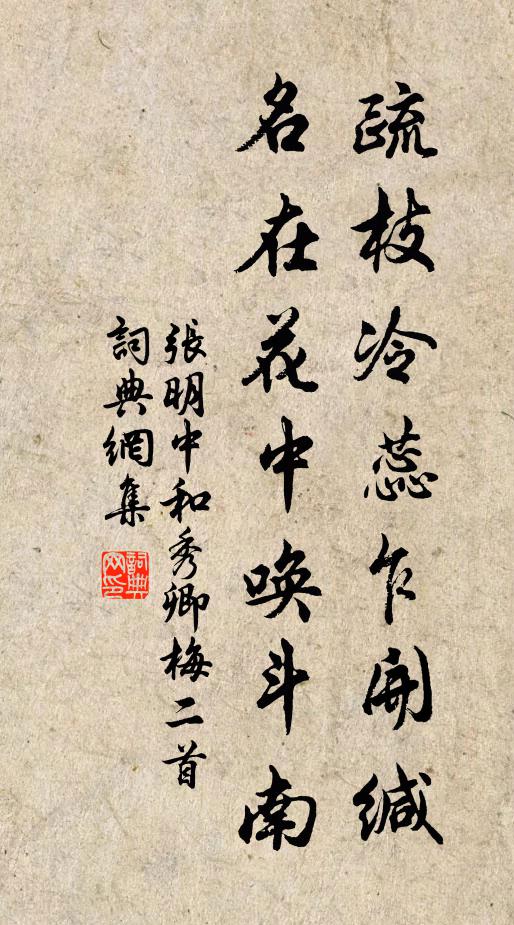 疏枝冷蕊乍開緘
名在花中喚斗南
張明中和秀卿梅二首
詞典網集
詞典网印